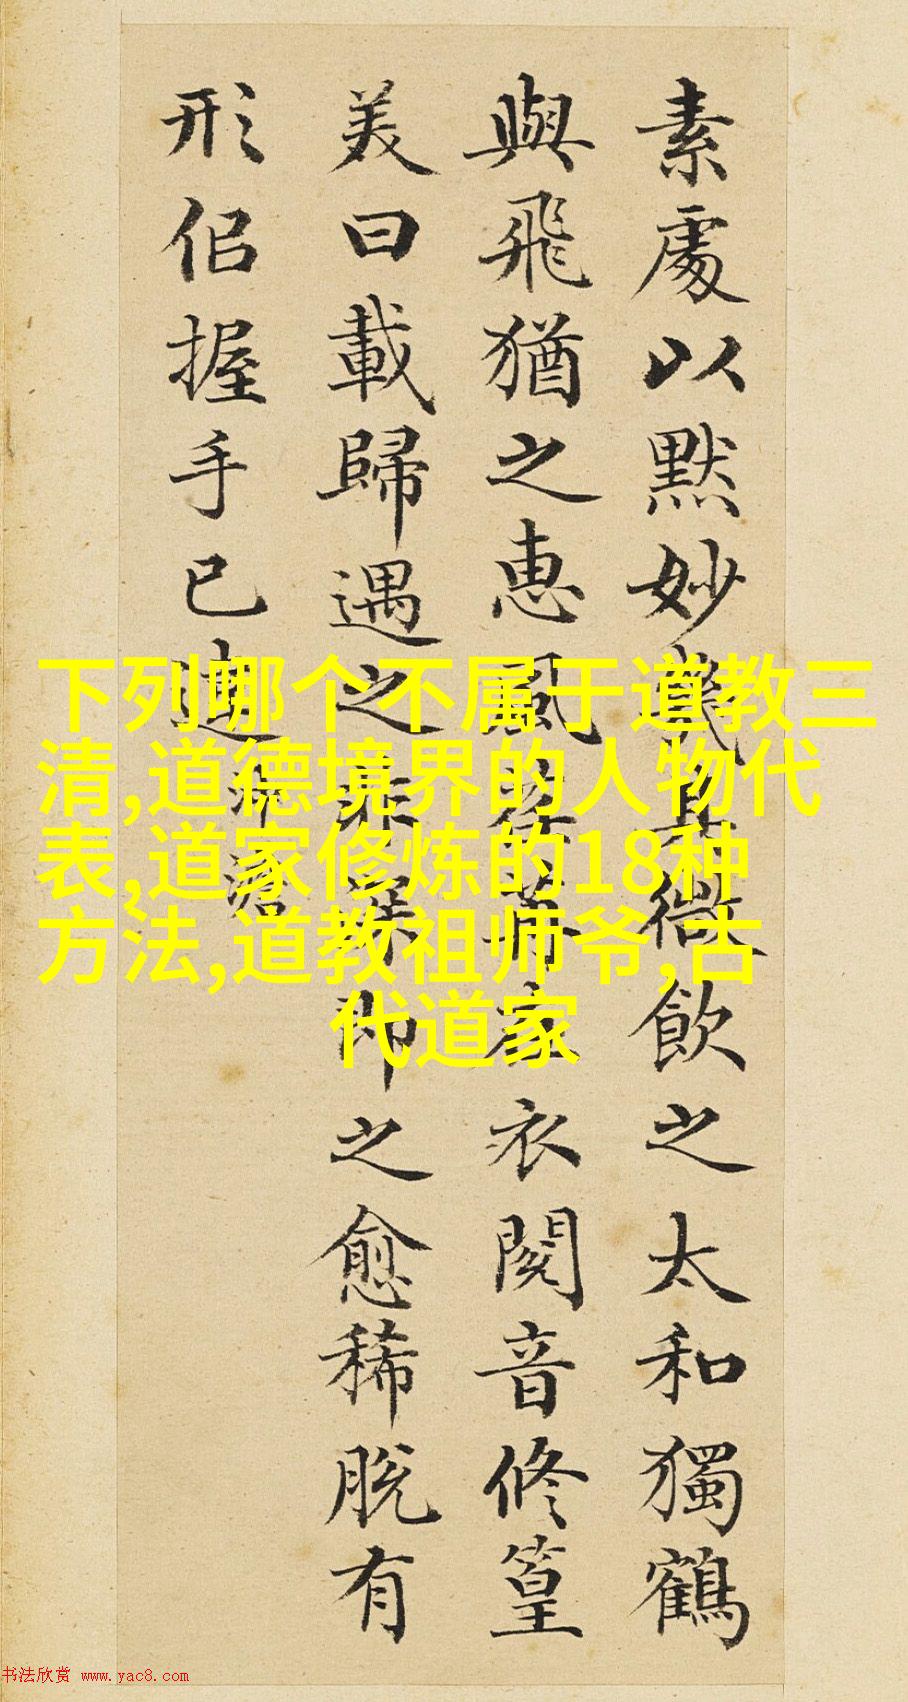 素處以默妙幾其微飲之太和獨鶴
與飛猶之惠風荏苒在衣閱音修篁
美曰載歸遇之非深即之愈稀脫有
形佀握手已違
沖澹
下列哪个不属于道教三
清,道德境界的人物代
表,道家修炼的18种
方法,道教祖师爷,古
代道家
书法欣赏 www.yac8.com